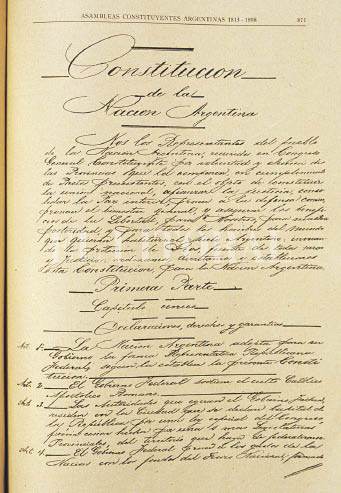 ASAMBLEAS CONSTITUYENTES ARGENTINAS 1813 - 1898 871
Constitucion
de la
Nacion Argentina
Nos los Representantes del pueblo
de la Nacion Argentina, reunidos en Congreso
General Constituyente por voluntad y eleccion de
las Provincias que la componen, en cumplimiento
de Pactos preexistentes, con el objeto de constituir
la union nacional, afianzar la justicia, conso
lidar la paz interior, proveer á la defensa comun,
promover el bienestar general, y asegurar los benefi
cios de la libertad, para nosotros, para nuestra
posteridad, y para todos los hombres del mundo
que quieran habitar el suelo Argentino, invocan
do la proteccion de Dios, fuente de toda razon
y justicia, ordenamos, decretamos y establecemos
esta Constitucion, para la Nacion Argentina.
Primera Parte
Capítulo único
Declaraciones, derechos y garantias
Art. 1 La Nacion Argentina adopta para su
Gobierno la forma Representativa Republicana
Federal, segun la establece la presente Consti
tucion.
Art. 2 El Gobierno Federal sostiene el culto Católico
Apostólico Romano.
Art. 3 Las autoridades que ejercen el Gobierno Federal,
residen en la Ciudad que se declare Capital de
la República por una ley especial del Congreso,
previa cesion hecha por una ó mas Legislaturas
Provinciales, del territorio que haya de federalizarse.
Art. 4 El Gobierno Federal provee á los gastos de la
Nacion con los fondos del Tesoro Nacional, formado